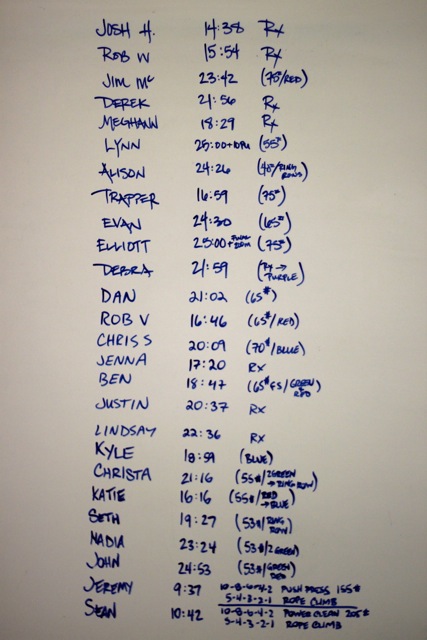 JOSH H. 14:38 Rx
ROB W 15:54 Rx
JIM Mc 23:42 (75#/RED)
DEREK 21:56 Rx
MEGHANN 18:29 Rx
LYNN 25:00 (55#)
ALISON 24:26 (RING ROWS)
TRAPPER 16:59 (75#)
EVAN 24:30 (65#)
ELLIOTT 25:00 (75#)
DEBRA 21:59 (Rx → PURPLE)
DAN 21:02 (65#)
ROB V 16:46 (65#/RED)
CHRIS S 20:09 (70#/BLUE)
JENNA 17:20 Rx
BEN 18:47 (65# FS/GREEN + RED)
JUSTIN 20:37 Rx
LINDSAY 22:36 Rx
KYLE 18:59 (BLUE)
CHRISTA 21:16 (55#/2GREEN → RING ROW)
KATIE 16:16 (55#/RED → BLUE)
SETH 19:27 (53#/RING ROW)
NADIA 23:24 (53#/2GREEN)
JOHN 24:53 (53#/GREEN RED)
JEREMY 9:37 10-8-6-4-2 PUSH PRESS 155#
5-4-3-2-1 ROPE CLIMB
SEAN 10:42 10-8-6-4-2 POWER CLEAN 205#
5-4-3-2-1 ROPE CLIMB